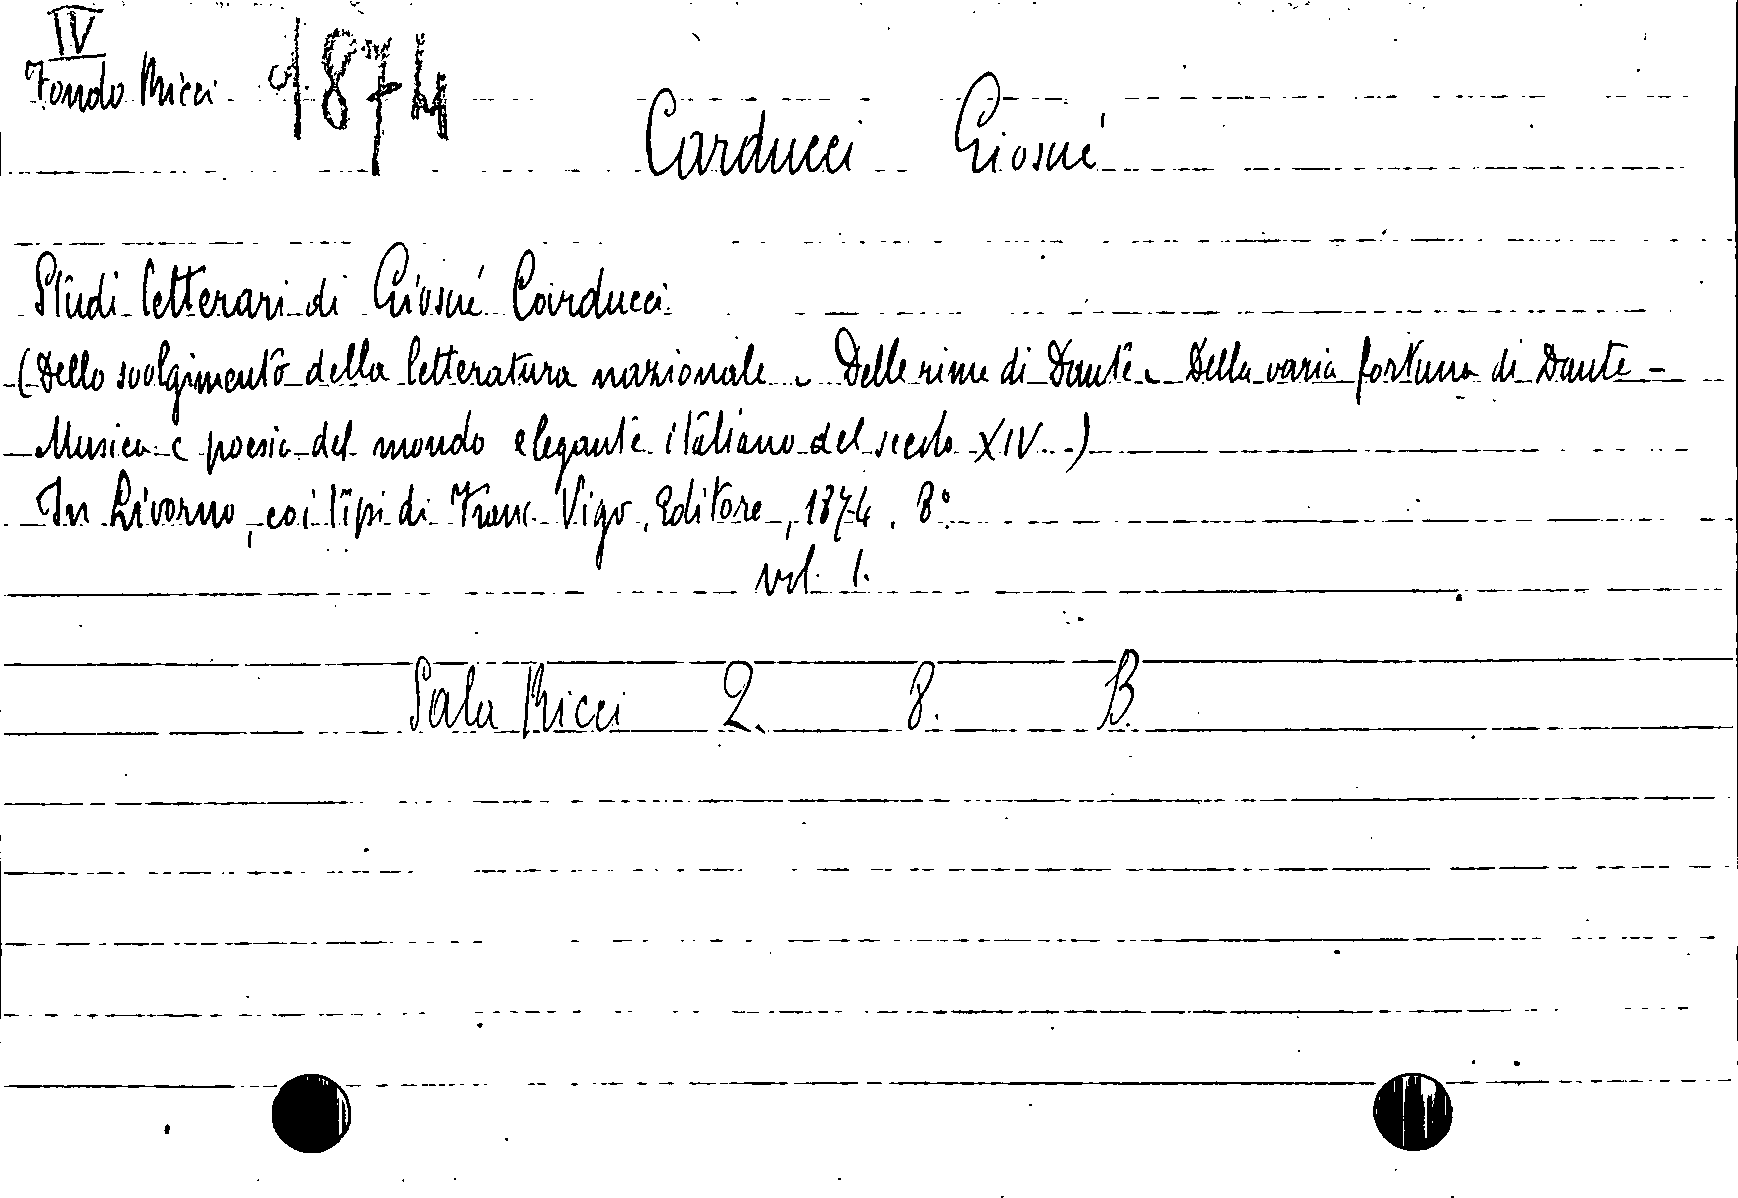 IV
Fondo Ricci 1874
Carducci Giosué
Studi letterari di Giosué Carducci
(Dello svolgimento della letteratura nazionale - Delle rime di Dante - Della varia fortuna di Dante -
Musica e poesia del mondo elegante italiano del secolo XIV.)
In Livorno, coi tipi di Franc. Vigo, Editore, 1874. 8°.
vol. 1.
Sala Ricci 2. 8. B.